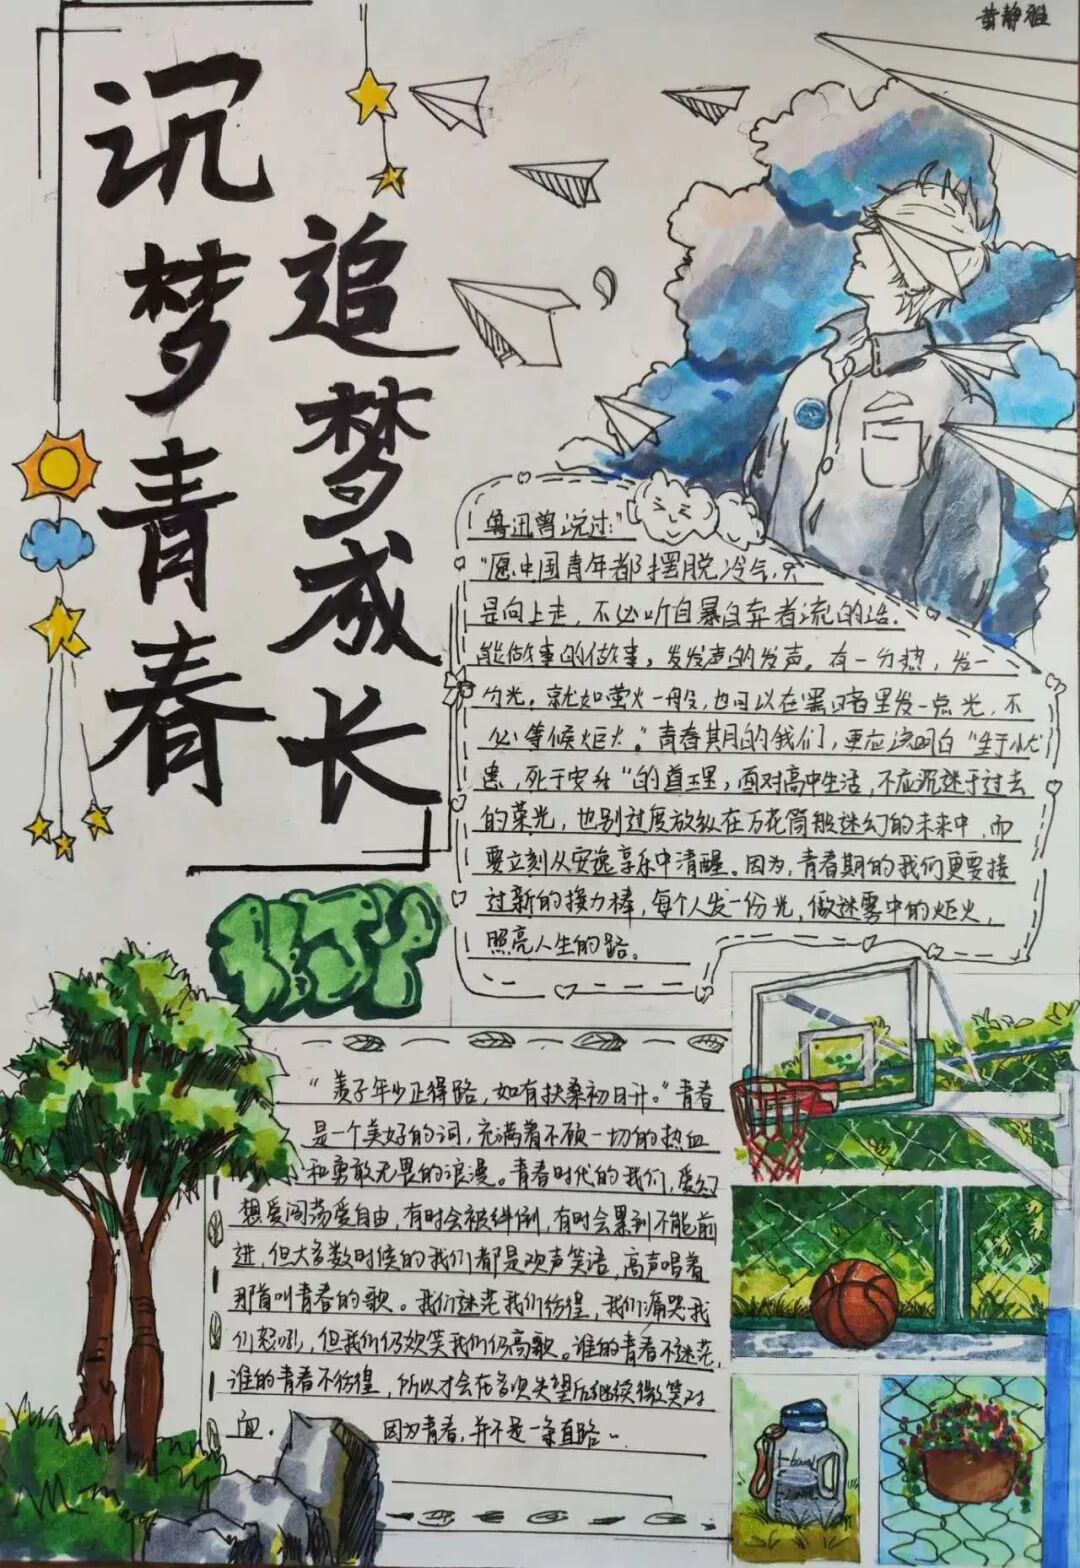 黄静雅
沉梦青春
追梦成长
鲁迅曾说过："
"愿中国青年都摆脱冷气，只
是向上走，不必听自暴自弃者流的话。
能做事的做事，发发声的发声。有一分热，发一
分光。就如萤火一般，也可以在黑暗里发一点光，不
必等候炬火。"青春期的我们，更应该明白"生于忧
患，死于安乐"的道理，面对高中生活，不应沉迷于过去
的荣光，也别过度放纵在万花筒般迷幻的未来中，而
要立刻从安逸享乐中清醒。因为，青春期的我们更要接
过新的接力棒，每个人发一份光，做迷雾中的炬火，
照亮人生的路。
"美子年少正得路，如有扶桑初日升。"青春
是一个美好的词，充满着不顾一切的热血
和勇敢无畏的浪漫。青春时代的我们，爱幻
想爱闯荡爱自由，有时会被绊倒，有时会累到不能前
进，但大多数时候的我们都是欢声笑语，高声唱着
那首叫青春的歌。我们迷茫我们彷徨，我们痛哭我
们怒吼，但我们仍欢笑我们仍高歌。谁的青春不迷茫，
谁的青春不彷徨，所以才会在多次失望后继续微笑对
面。 因为青春，并不是一条直路。